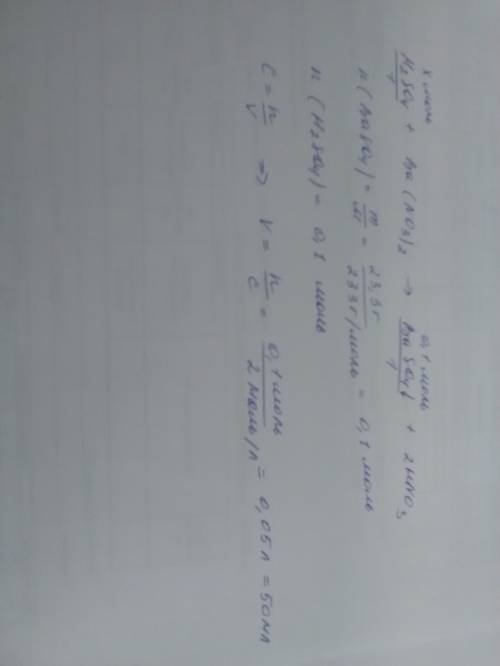 x моль 0,1 моль
H2SO4 + Ba(NO3)2 → BaSO4↓ + 2HNO3
1 1
n(BaSO4) = m/M = 23,3г/233г/моль = 0,1 моль
n(H2SO4) = 0,1 моль
C = n/V ⇒ V = n/C = 0,1моль/2моль/л = 0,05л = 50мл